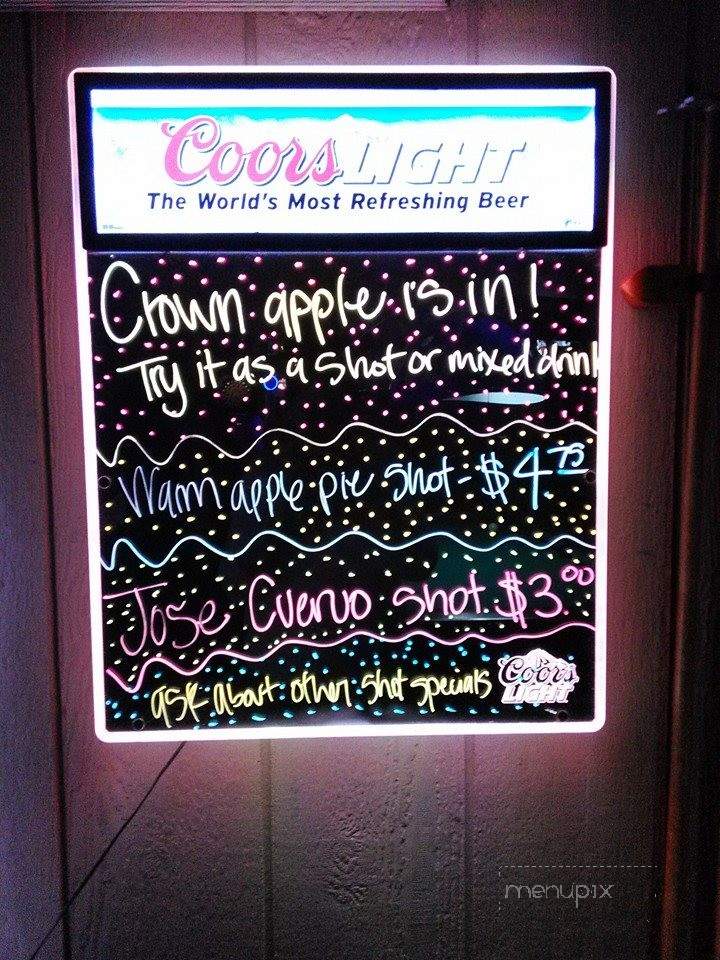 Coors LIGHT
The World's Most Refreshing Beer
Crown apple is in!
Try it as a shot or mixed drink
Warm apple pie shot - $4.75
Jose Cuervo shot $3.00
ask about other shot specials
Coors
LIGHT
menupix